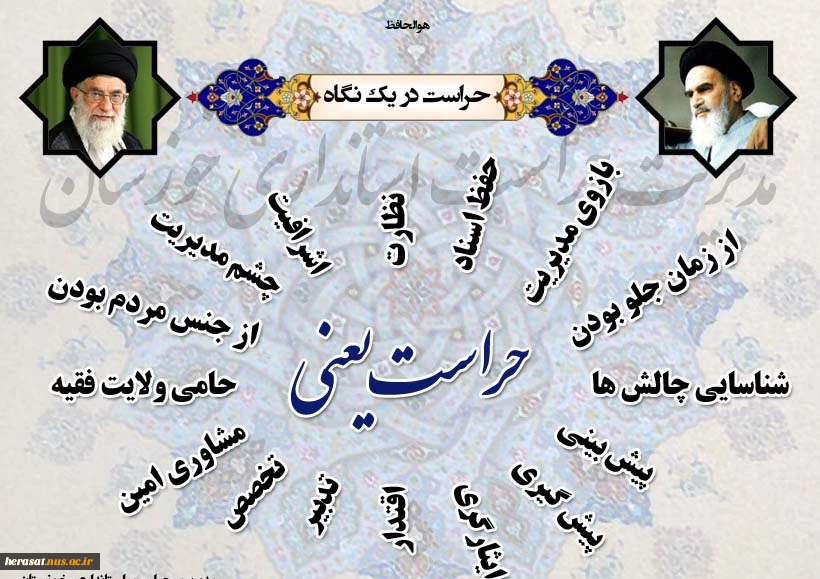 هوالحافظ
حراست در یک نگاه
مدیریت حراست استانداری خوزستان
حراست یعنی
حفظ اسناد
بازوی مدیریت
از زمان جلو بودن
شناسایی چالش ها
پیش بینی
پیش گیری
ایثارگری
اقتدار
تدبیر
تخصص
مشاوری امین
حامی ولایت فقیه
از جنس مردم بودن
چشم مدیریت
اشرافیت
نظارت
herasat.nus.ac.ir